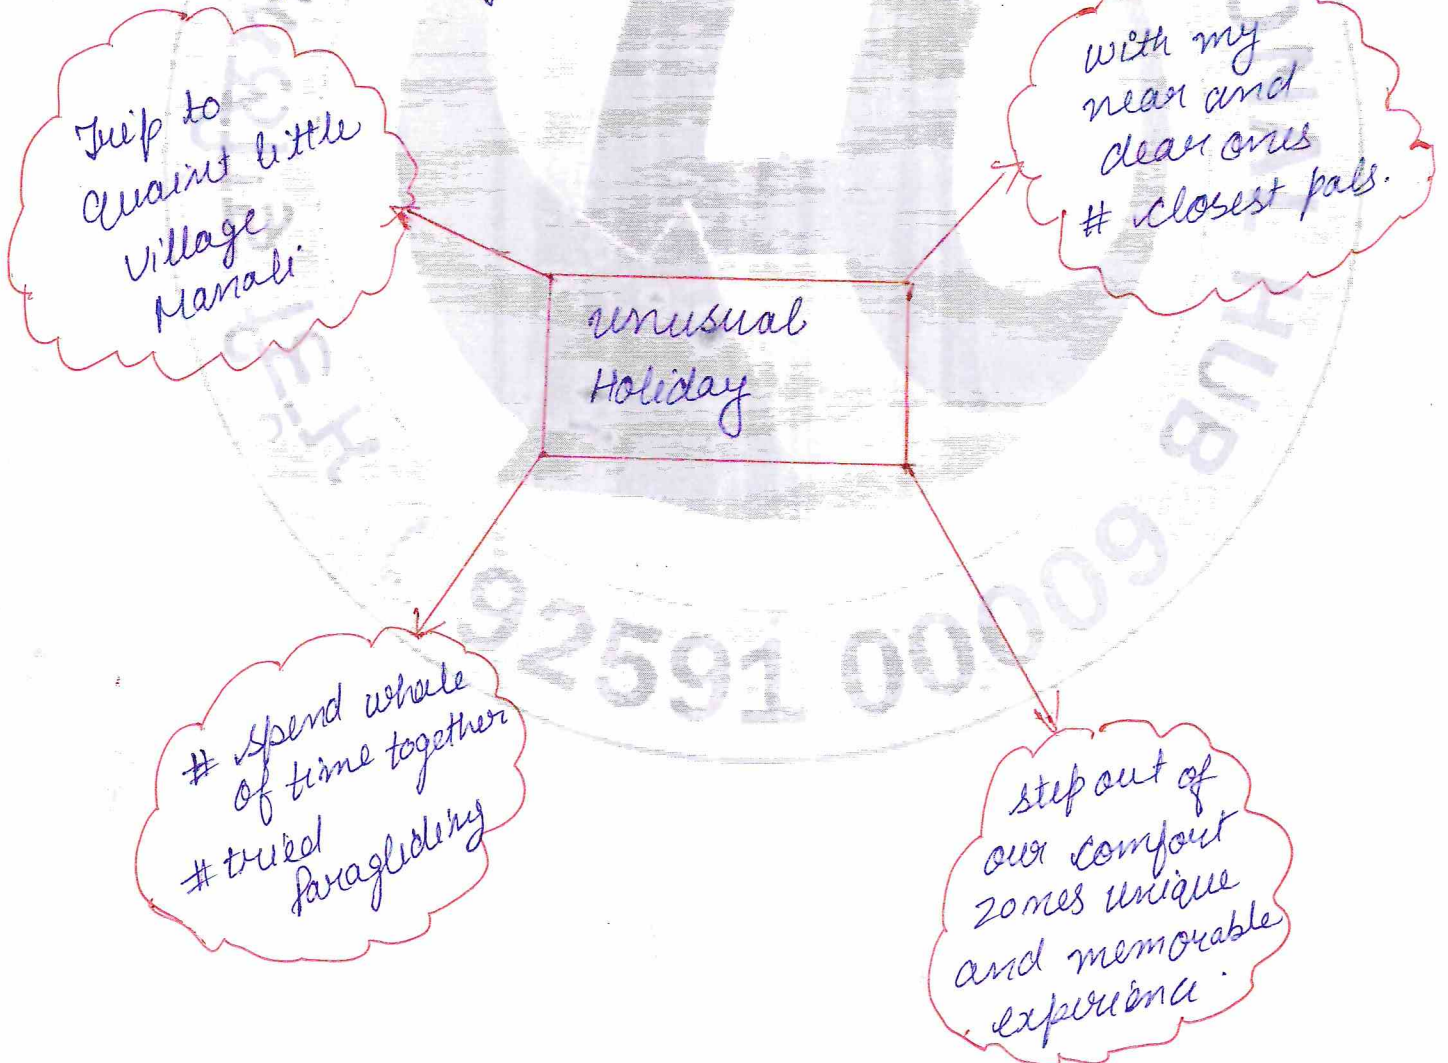 Trip to
quaint little
village
Manali.
with my
near and
dear ones
# closest pals.
unusual
Holiday
# spend whole
of time together
# tried
Paragliding
step out of
our comfort
zones unique
and memorable
experience.
92591 00009
HUB